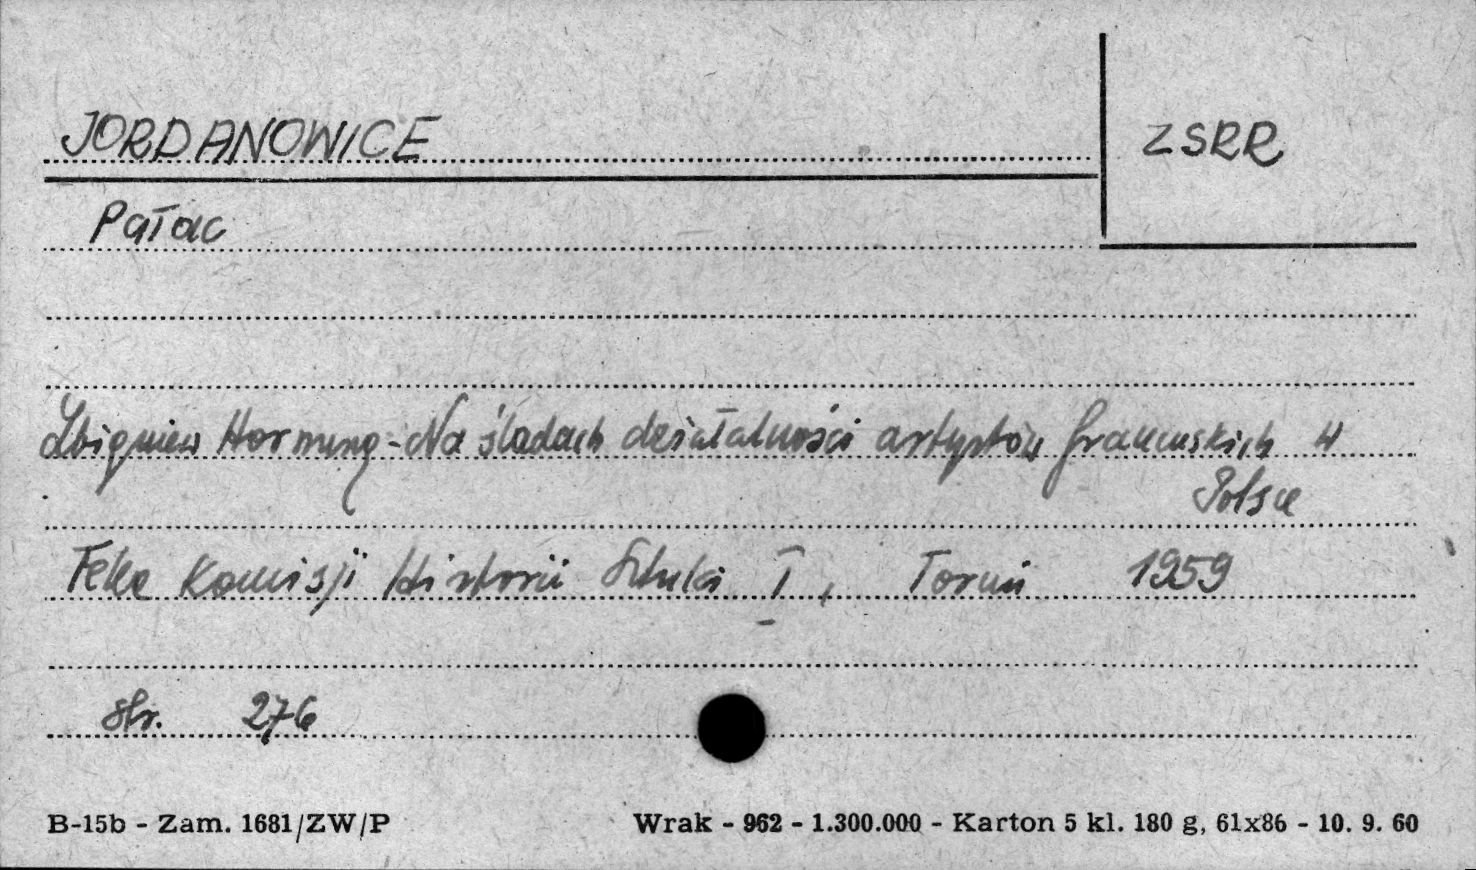 JORDANOWICE
ZSRR
Pałac
Zbigniew Hornung - Na śladach działalności artystów francuskich w
Polsce
Teka Komisji Historii Sztuki I, Toruń 1959
str. 276
B-15b - Zam. 1681/ZW/P
Wrak - 962 - 1.300.000 - Karton 5 kl. 180 g, 61x86 - 10. 9. 60